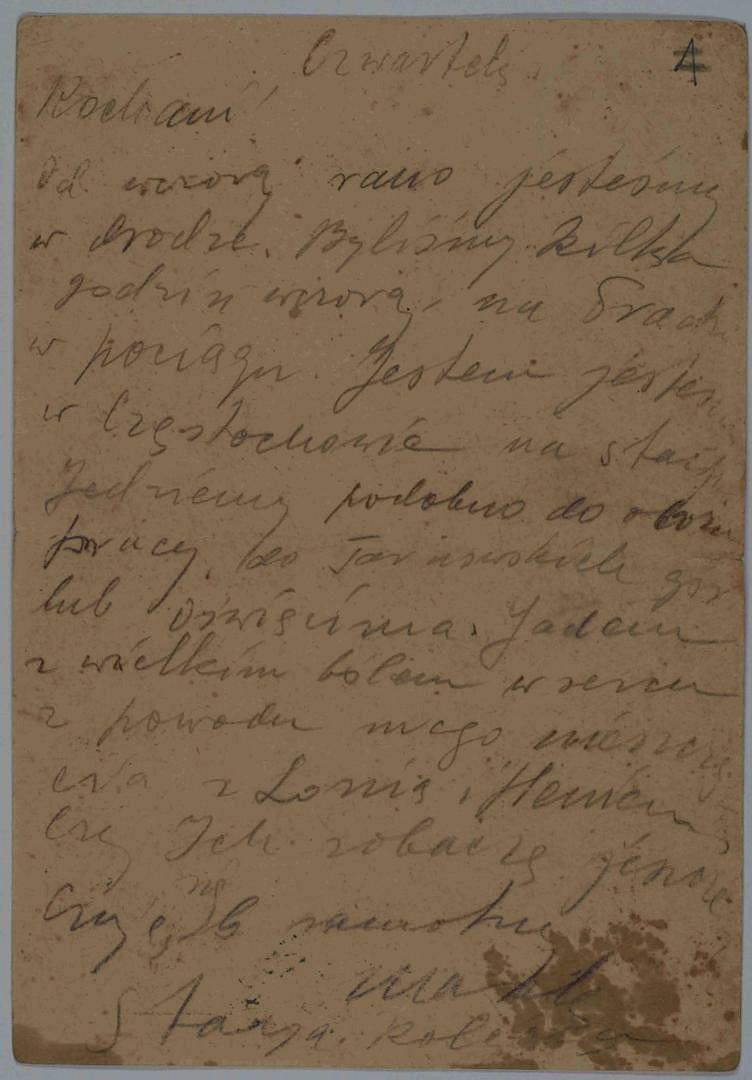 Czwartek 4
Kochani!
Od wczoraj rano jesteśmy
w drodze. Byliśmy kilka
godzin wczoraj, na
w pociągu. Jestem
w Częstochowie na stacji
Jedziemy podobno do obozu
pracy, do Tarnowskich gór
lub Oświęcimia. Jadę
z wielkim bólem w sercu
z powodu mego nieszczę
ścia z Lonią i Heniem
Czy Ich zobaczę jeszcze
Czy
samotny
Stacja